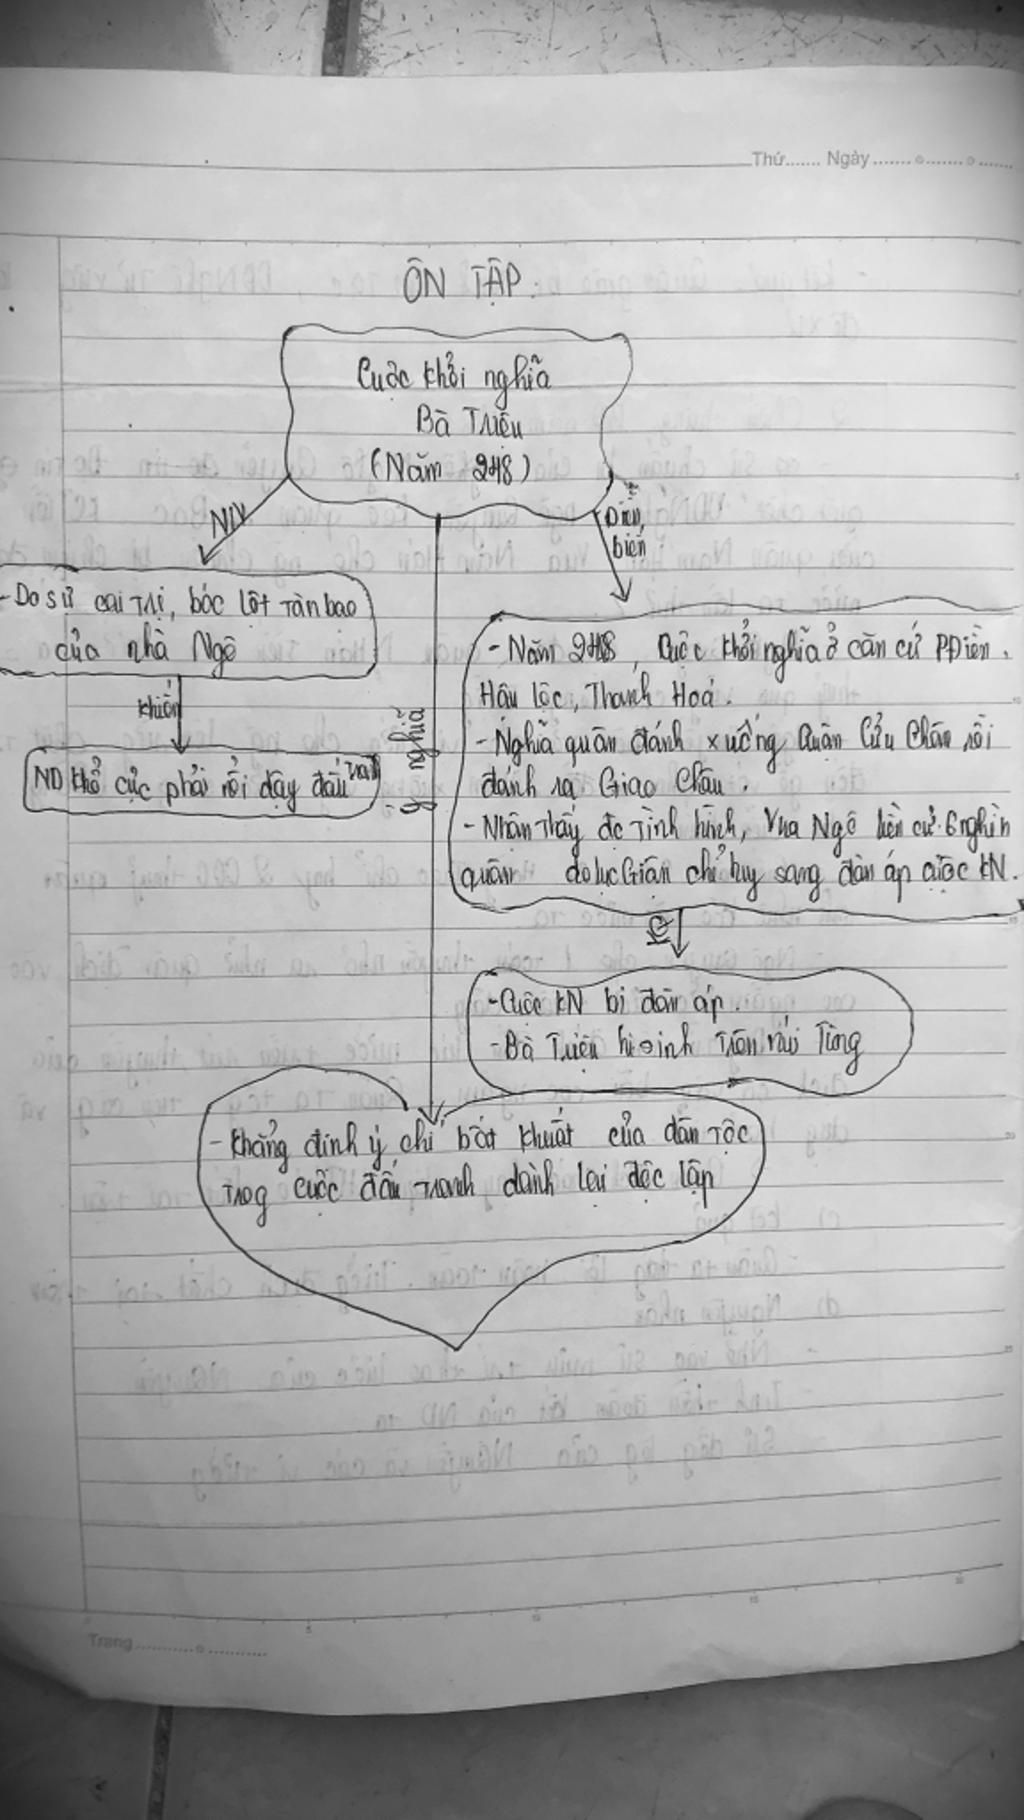 Thứ....... Ngày.......................
ÔN TẬP
Cuộc khởi nghĩa
Bà Triệu
(Năm 248)
NN
Diễn
biến
- Do sự cai trị, bóc lột tàn bạo
của nhà Ngô
khiến
ND khổ cực phải nổi dậy đấu tranh
ý nghĩa
- Năm 248, Cuộc khởi nghĩa ở căn cứ P.Điền.
Hậu lộc, Thanh Hoá.
- Nghĩa quân đánh xuống Quận Cửu Chân rồi
đánh ra Giao Châu.
- Nhận thấy đc tình hình, Vua Ngô liền cử 6 nghìn
quân do lục Giận chỉ huy sang đàn áp cuộc KN.
KQ
- Cuộc KN bị đàn áp.
- Bà Triệu hi sinh trên núi Tùng
- Khẳng định ý chí bất khuất của dân tộc
trog cuộc đấu tranh dành lại độc lập
Trang......................